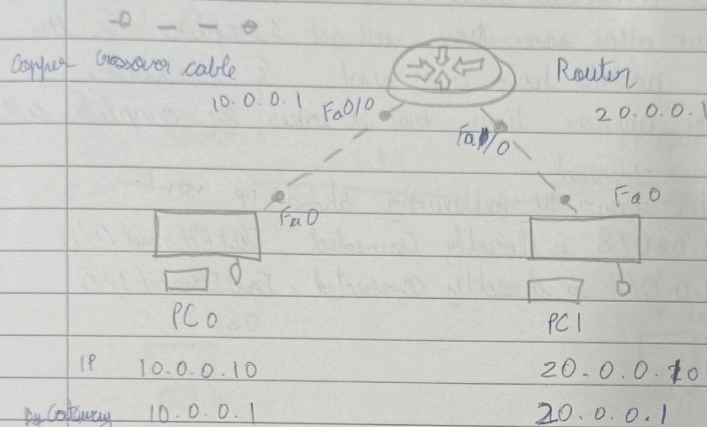 Copper Crossover cable
Router
10.0.0.1 Fa0/0
20.0.0.1
Fa1/0
Fa0
Fa0
PC0
PC1
IP 10.0.0.10 20.0.0.10
Gateway 10.0.0.1 20.0.0.1